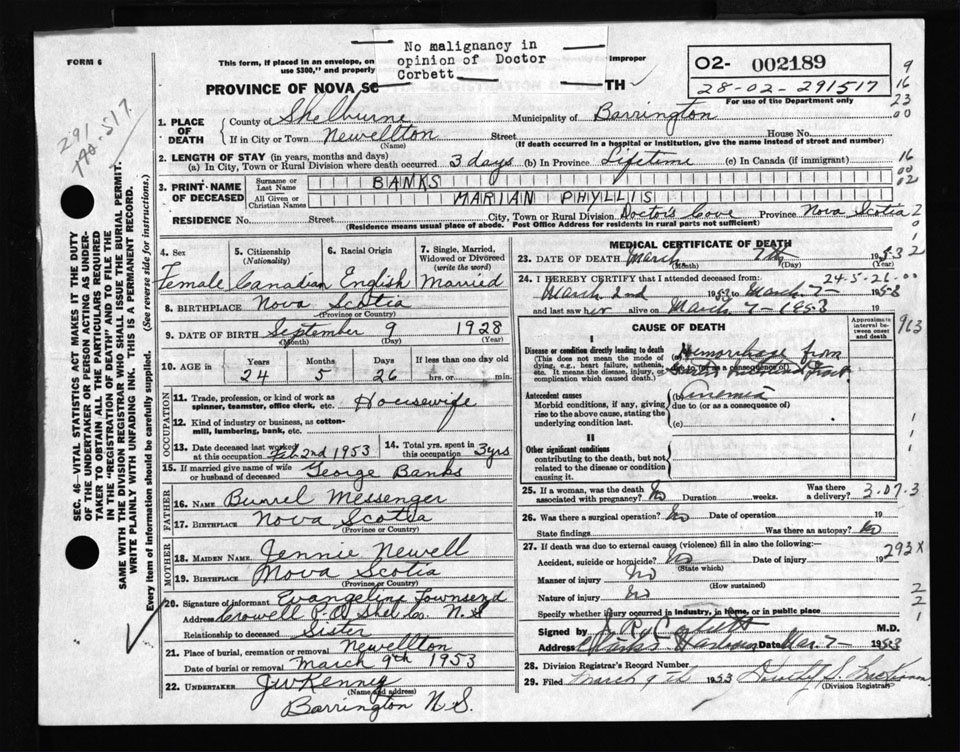 FORM 6
This form, if placed in an envelope, on
use $300," and properly
No malignancy in
opinion of Doctor
Corbett
Improper
PROVINCE OF NOVA SC
TH
O2- 002189
28-02-291517
For use of the Department only
9
16
23
00
291
517
1. PLACE OF DEATH
County of Shelburne
Municipality of Barrington
If in City or Town Newellton
(Name)
Street
House No.
(If death occurred in a hospital or institution, give the name instead of street and number)
2. LENGTH OF STAY (in years, months and days)
(a) In City, Town or Rural Division where death occurred 3 days (b) In Province Lifetime (c) In Canada (if immigrant)
16
00
02
3. PRINT NAME OF DECEASED
Surname or Last Name BANKS
All Given or Christian Names MARIAN PHYLLIS
RESIDENCE No. Street City, Town or Rural Division Doctors Cove Province Nova Scotia
(Residence means usual place of abode. Post Office Address for residents in rural parts not sufficient)
2
0
1
2
4. Sex
Female
5. Citizenship
(Nationality)
Canadian
6. Racial Origin
English
7. Single, Married, Widowed or Divorced
(write the word)
Married
8. BIRTHPLACE Nova Scotia
(Province or Country)
9. DATE OF BIRTH September 9 1928
(Month) (Day) (Year)
10. AGE in
Years Months Days If less than one day old
24 5 26 hrs. or min.
OCCUPATION
11. Trade, profession or kind of work as spinner, teamster, office clerk, etc. Housewife
12. Kind of industry or business, as cotton-mill, lumbering, bank, etc.
13. Date deceased last worked at this occupation Feb 2nd 1953
14. Total yrs. spent in this occupation 3 yrs
15. If married give name of wife or husband of deceased George Banks
FATHER
16. Name Burrel Messenger
17. Birthplace Nova Scotia
(Province or Country)
MOTHER
18. Maiden Name Jennie Newell
19. Birthplace Nova Scotia
(Province or Country)
20. Signature of informant Evangeline Townsend
Address Crowell P.O Shel Co. N.S
Relationship to deceased Sister
21. Place of burial, cremation or removal Newellton
Date of burial or removal March 9th 1953
22. Undertaker J W Kenney
(Name and address)
Barrington N.S.
MEDICAL CERTIFICATE OF DEATH
23. DATE OF DEATH March 7th 1953
(Month) (Day)
24. I HEREBY CERTIFY that I attended deceased from:
24-5-26-00
March 2nd 1953 to March 7- 1953
and last saw her alive on March 7-1953 19
CAUSE OF DEATH
Approximate interval between onset and death
963
I
Disease or condition directly leading to death
(This does not mean the mode of dying, e.g., heart failure, asthenia, etc. It means the disease, injury, or complication which caused death.)
(a) Hemorrhage from
due to (or as a consequence of)
Antecedent causes
Morbid conditions, if any, giving rise to the above cause, stating the underlying condition last.
(b) Anemia
due to (or as a consequence of)
(c)
II
Other significant conditions
contributing to the death, but not related to the disease or condition causing it.
1
1
25. If a woman, was the death associated with pregnancy? No Duration weeks. Was there a delivery? 3.07.3
26. Was there a surgical operation? No Date of operation 19
State findings Was there an autopsy? No
27. If death was due to external causes (violence) fill in also the following:
293X
Accident, suicide or homicide? No Date of injury 19
(State which)
Manner of injury No
(How sustained)
Nature of injury No
Specify whether injury occurred in industry, in home, or in public place
2
2
1
Signed by M.D.
Address Clarks Harbour Date Mar. 7- 1953
28. Division Registrar's Record Number
29. Filed March 9th 1953 Dorothy S.
(Division Registrar)
SEC. 46- VITAL STATISTICS ACT MAKES IT THE DUTY
OF THE UNDERTAKER OR PERSON ACTING AS UNDER-
TAKER TO OBTAIN ALL THE PARTICULARS REQUIRED
IN THE "REGISTRATION OF DEATH" AND TO FILE THE
SAME WITH THE DIVISION REGISTRAR WHO SHALL ISSUE THE BURIAL PERMIT.
WRITE PLAINLY WITH UNFADING INK. THIS IS A PERMANENT RECORD.
Every item of information should be carefully supplied. (See reverse side for instructions.)